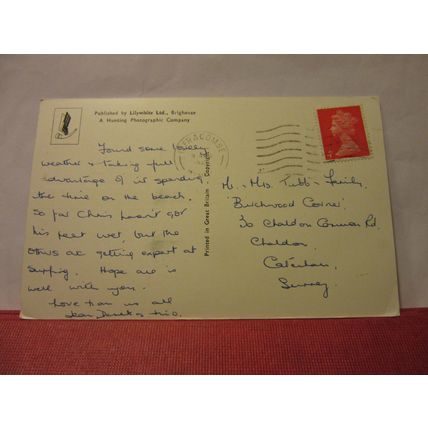 Published by Lilywhite Ltd., Brighouse
A Hunting Photographic Company
Found some lovely
weather & taking full
advantage of it spending
the time on the beach.
So far Chris hasn't got
his feet wet but the
others are getting expert at
surfing. Hope all is
well with you.
Love from us all
Jean Derek &
Printed in Great Britain - Copyright
ILFRACOMBE
Mr. Mrs. Tubb & Family,
'Birchwood Corner'
30 Chaldon Common Rd.
Chaldon,
Caterham,
Surrey.